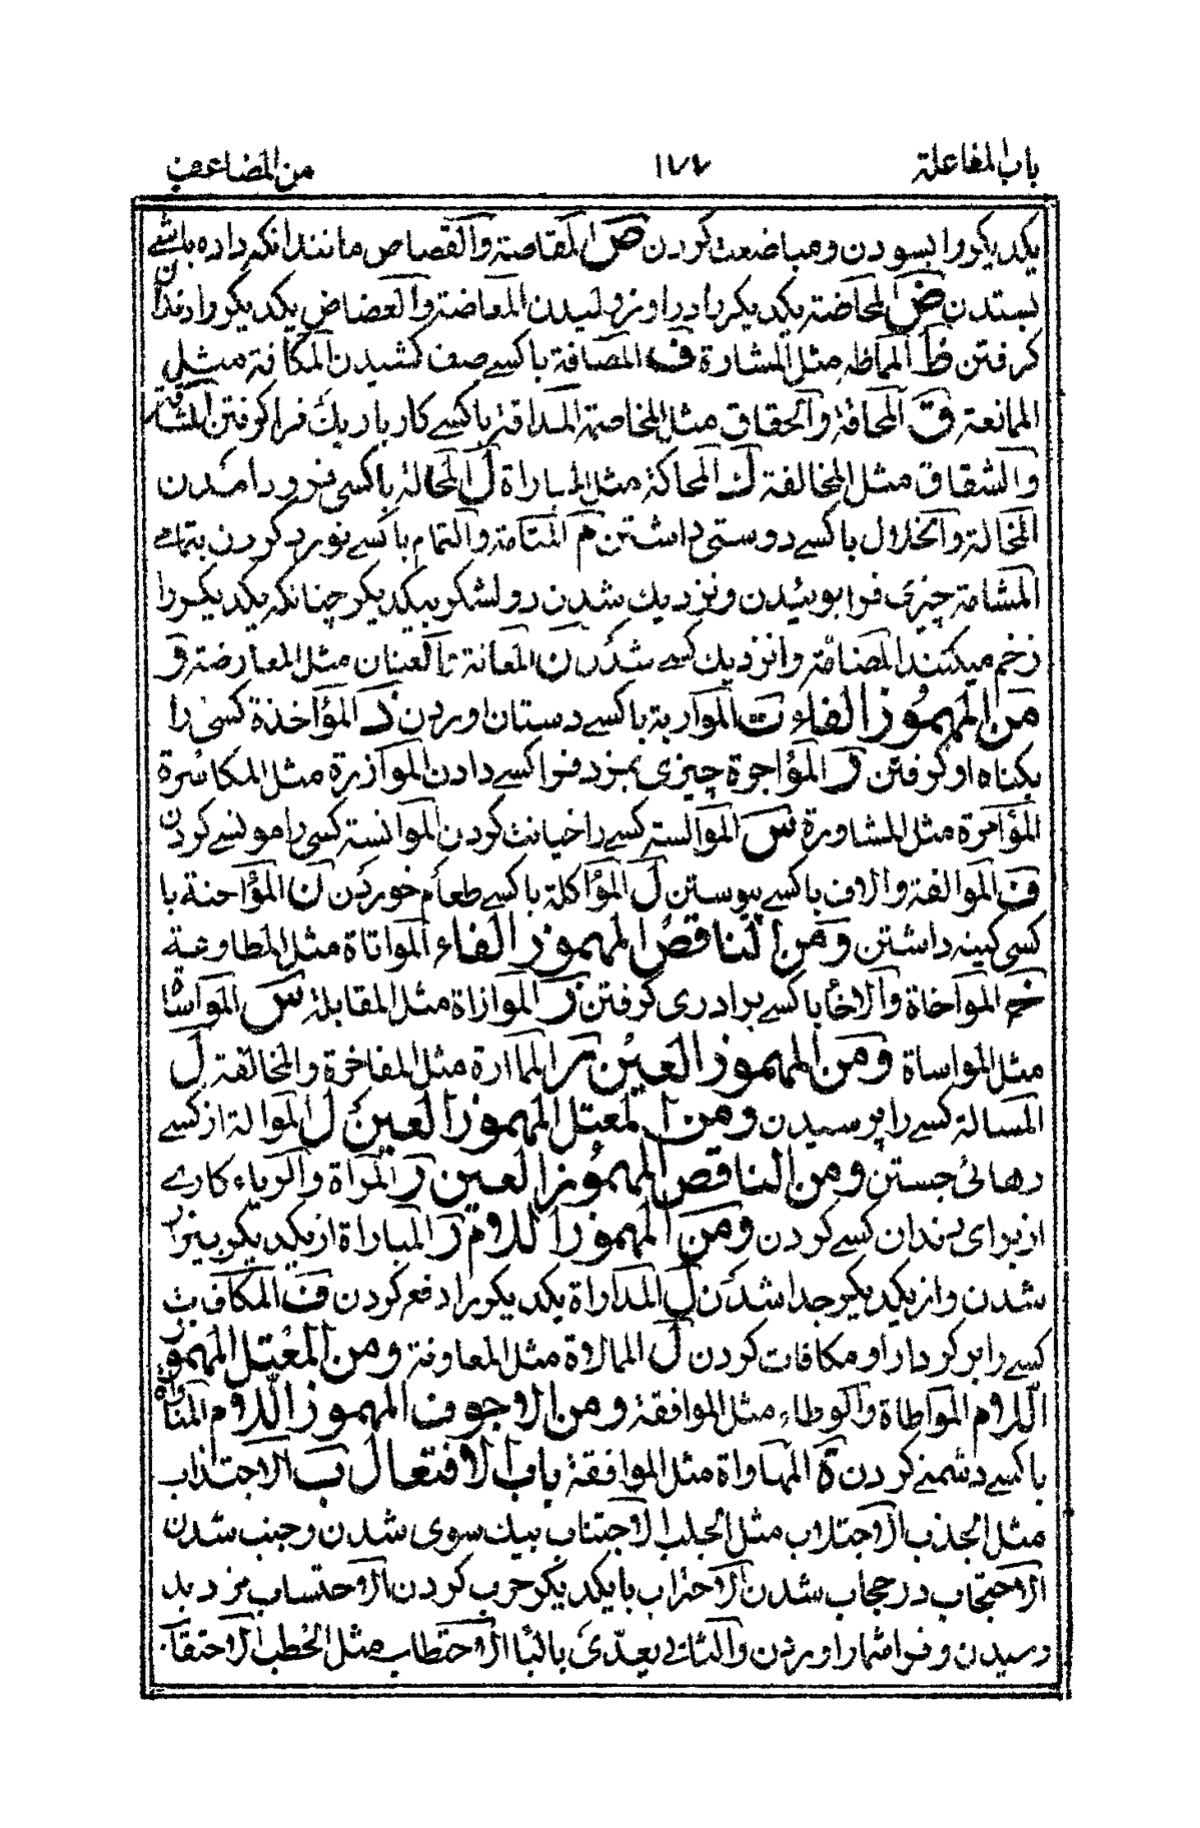 باب المفاعلة ١٧٧ من المضاعف
یکدیکر را بسودن و مباضعت کردن ص المقاصة والقصاص مانند انکه داده باشی
بستدن ض المحاضة یکدیکر را در اوزولیدن المعاضة والعضاض یکدیکر را دندان
کرفتن ظ المماظه مثل المشارة ف المصافة با کسے صف کشیدن المکافة مثل
الممانعة ق المحاقة والحقاق مثل المخاصمة المداقة با کسے کار باریك فرا کرفتن المشاقة
والشقاق مثل المخالفة ك المحاکة مثل المباراة ل المحالة با کسی فرود امدن
المخالة والخلال با کسے دوستی داشتن م المتامة والتمام با کسے نورد کردن بتمامے
المشامة چیزی فرا بوئیدن و نزدیك شدن دو لشکر بیکدیکر چنانکه یکدیکر را
زخم میکنند المضامة وا نزدیك کسے شدن ن المعانة والعنان مثل المعارضة و
من المهموز الفاء ت المواربة با کسے دستان اوردن ذ المؤاخذة کسی را
بکناه او کرفتن ر المؤاجرة چیزی بمزد فرا کسے دادن الموازرة مثل المکاشرة
المؤامرة مثل المشاورة س الموالسة کسے را خیانت کردن الموانسة کسی را مونسے کردن
ف الموالفة والالاف با کسے پیوستن ل المؤاکلة با کسے طعام خوردن ن المؤاحنة با
کسی کینه داشتن ومن الناقص المهموز الفاء المواتاة مثل المطاوعة
خ المواخاة والاخا با کسے برادری کرفتن ز الموازاة مثل المقابلة س المواساة
مثل المواساة ومن المهموز العین ر المماارة مثل المفاخرة والمخالفة ل
المسالة کسے را پرسیدن ومن المعتل المهموز العین ل الموالة از کسے
رهائی جستن ومن الناقص المهموز العین ر المراة والریاء کارے
از برای دیدان کسے کردن ومن المهموز اللام ر المباراة از یکدیکر بیزار
شدن و از یکدیکر جدا شدن ل المداراة یکدیکر را دفع کردن ف المکافات
کسے را بر کردار او مکافات کردن ل الممالاة مثل المعاونة ومن المعتل المهموز
اللام المواطاة والوطاء مثل الموافقة ومن الاجوف المهموز اللام المناواة
با کسے دشمنے کردن ة المهاواة مثل الموافقة باب الافتعال ب الاجتذاب
مثل الجذب الاجتلاب مثل الجلب الاجتناب بیك سوی شدن و جنب شدن
الاحتجاب در حجاب شدن الاحتراب با یکدیکر حرب کردن الاحتساب مزد بد
رسیدن و فرا شمار اوردن والثانے یعدّی بالبا الاحتطاب مثل الحطب الاحتقا